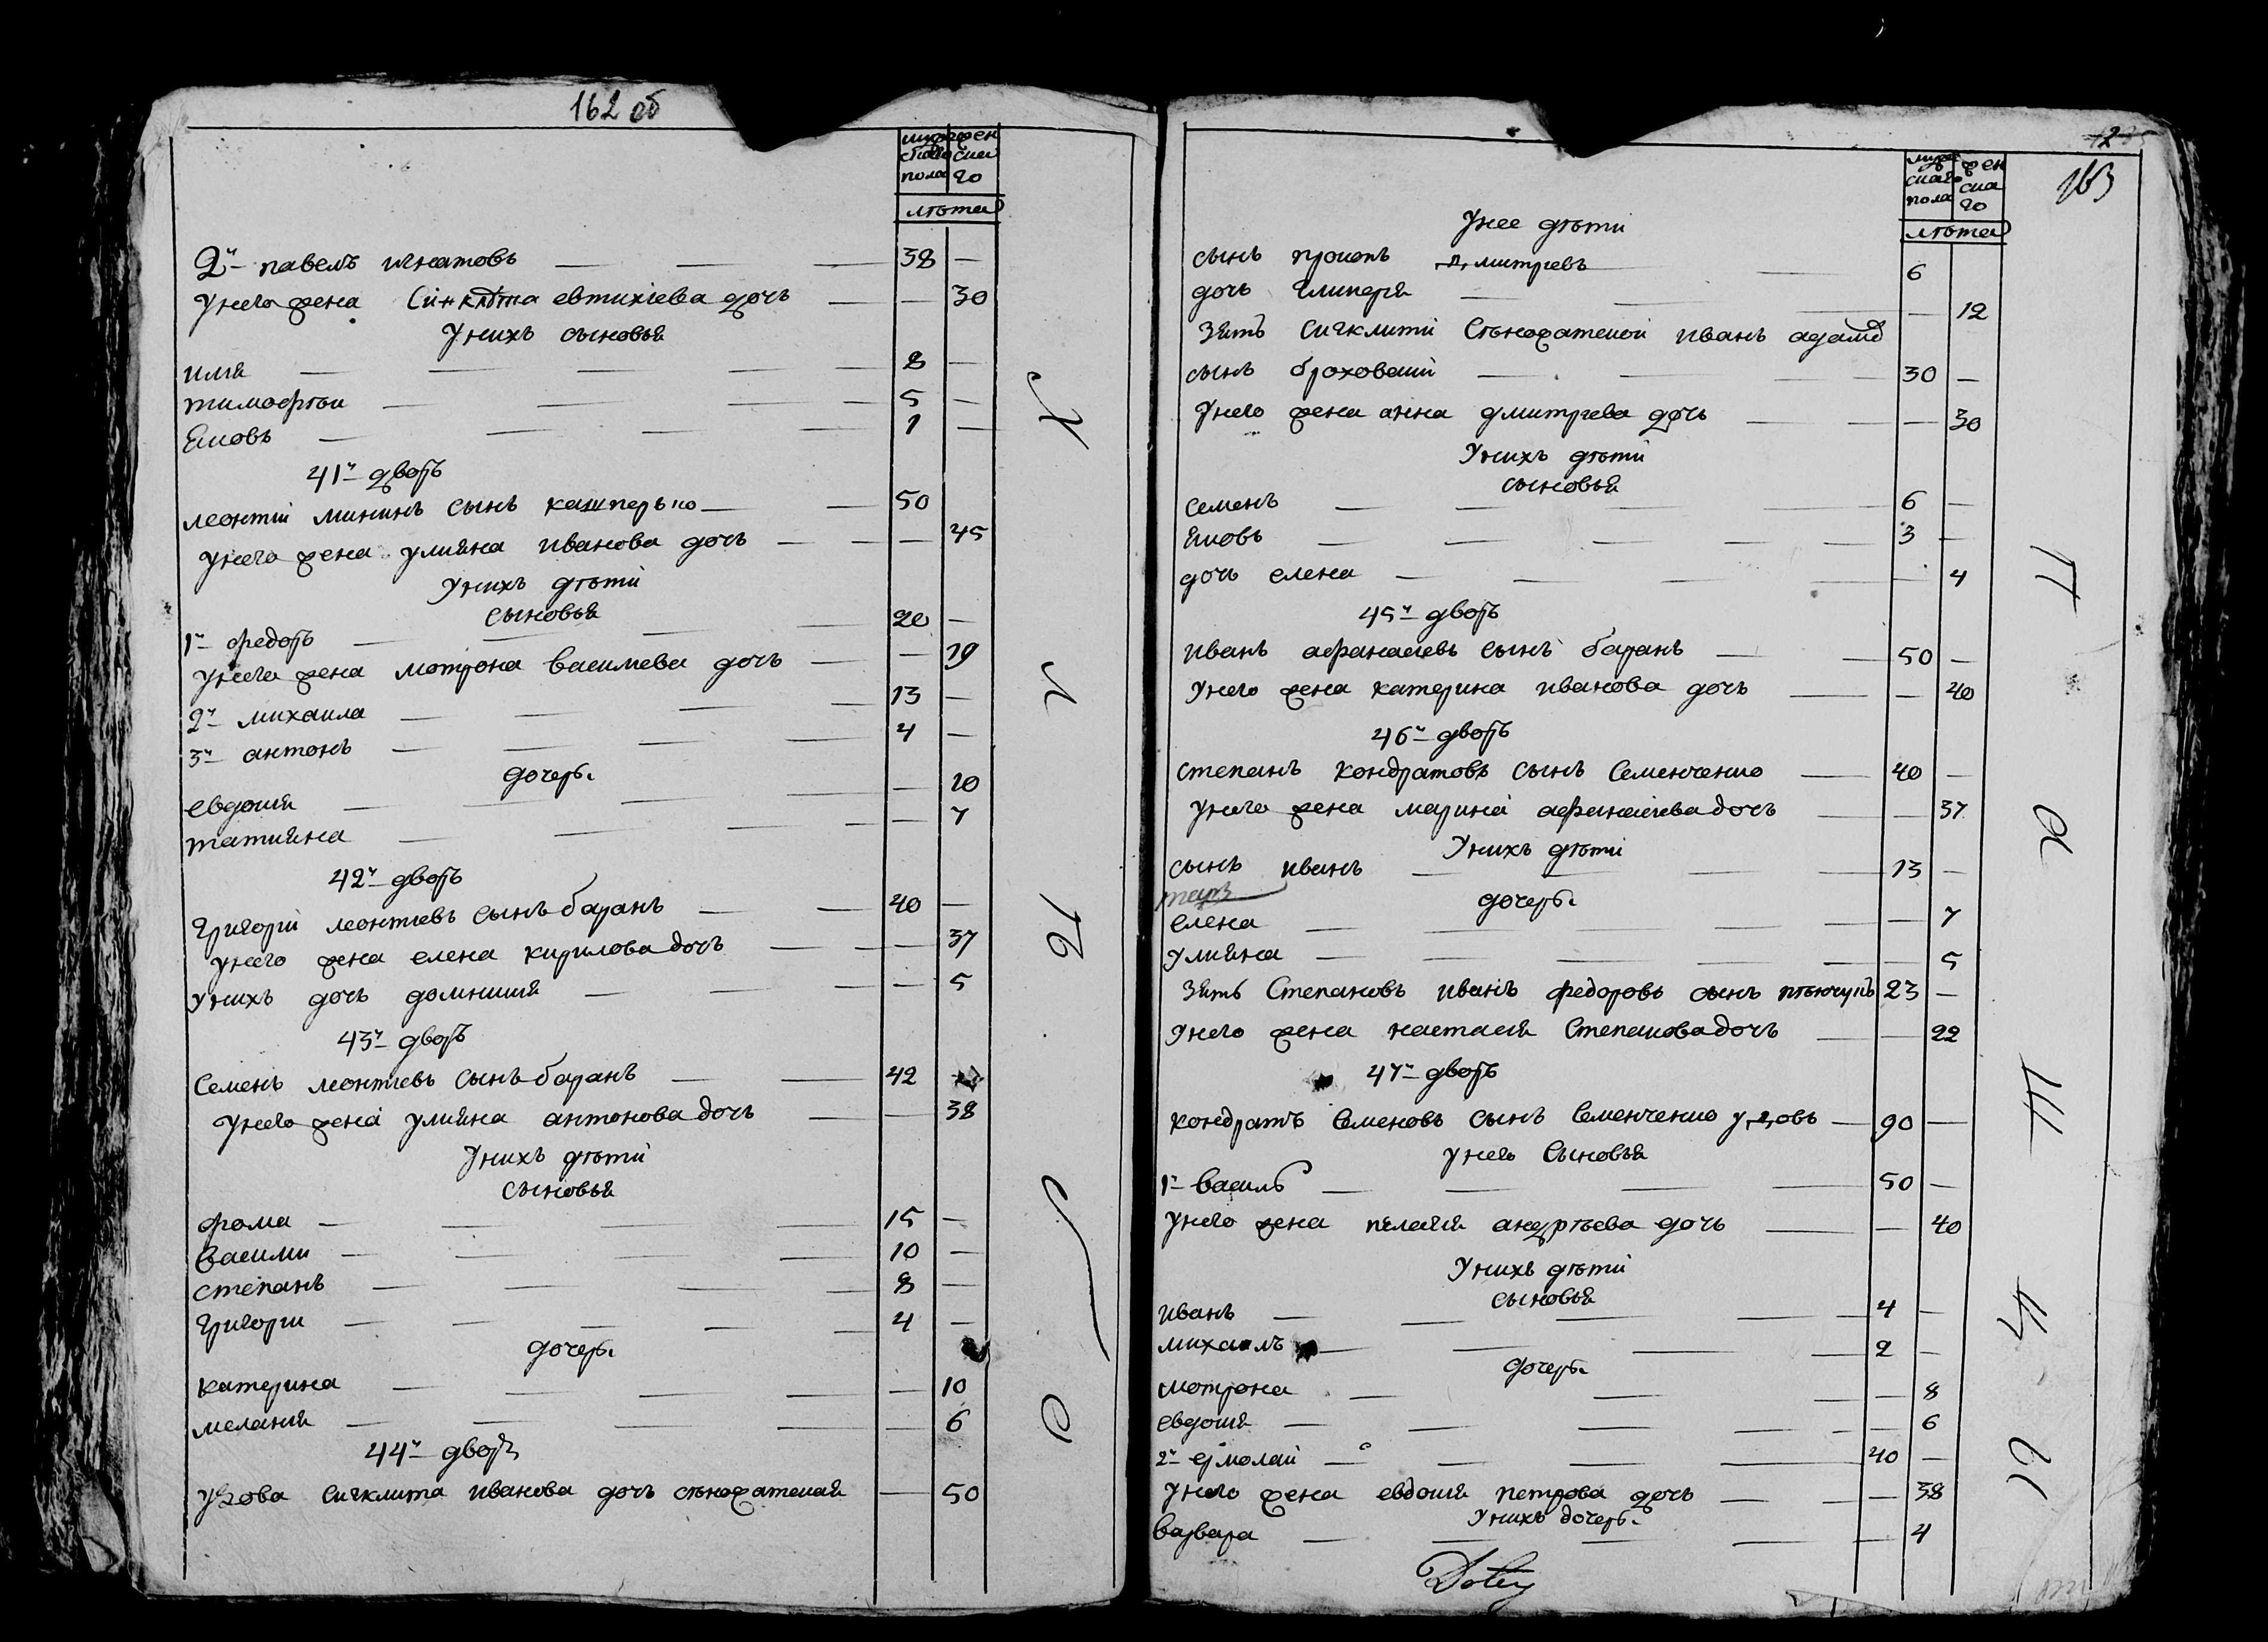 162 об
мужеска пола
женска го
лѣта
2й павелъ игнатовъ 38 —
Унего жена Синклѣта евтихіева дочь — 30
Унихъ сыновья
илия 8 —
тимофѣи 5 —
Яковъ 1 —
41й дворъ
леонтій мининъ сынъ кашперько 50
Унего жена улияна иванова дочь — 45
Унихъ дѣти
сыновья
1й федоръ 20 —
Унего жена мотрона василиева дочь — 19
2й михаила 13 —
3й антонъ 4 —
дочери
евдокия — 10
татияна — 7
42й дворъ
Григорій леонтіевъ сынъ баранъ 40 —
Унего жена елена кирилова дочь — 37
Унихъ дочь домникия — 5
43й дворъ
Семенъ леонтіевъ сынъ баранъ 42
Унего жена улияна антонова дочь — 38
Унихъ дѣти
сыновья
фома 15 —
василии 10 —
степанъ 8 —
Григории 4 —
дочери
катерина — 10
мелания — 6
44й дворъ
Удова Сигклита иванова дочь сѣножатская — 50
163
мужеска пола
женска го
лѣта
Унее дѣти
сынъ прокопъ дмитріевъ 6
дочь гликерія — 12
Зять Сигклитіи Сѣножатской иванъ адамовъ
сынъ броховецкій 30 —
Унего жена анна дмитріева дочь — 30
Унихъ дѣти
сыновья
семенъ 6 —
Яковъ 3 —
дочь елена — 4
45й дворъ
иванъ афанасіевъ сынъ баранъ 50 —
Унего жена катерина иванова дочь — 40
46й дворъ
степанъ кондратовъ сынъ Семенченко 40 —
Унего жена марина афанасіева дочь — 37
Унихъ дѣти
сынъ иванъ 13 —
дочери
елена — 7
Улияна — 5
Зять Степановъ иванъ федоровъ сынъ 23 —
Унего жена настасия Степанова дочь — 22
47й дворъ
кондратъ Семеновъ сынъ Семенченко удовъ 90 —
унего Сыновья
1й василь 50 —
Унего жена пелагия андрѣева дочь — 40
Унихъ дѣти
сыновья
иванъ 4 —
михаилъ 2 —
дочери
мотрона — 8
евдокия — 6
2й ермолаи 40 —
Унего жена евдокия петрова дочь — 38
Унихъ дочери
варвара — 4